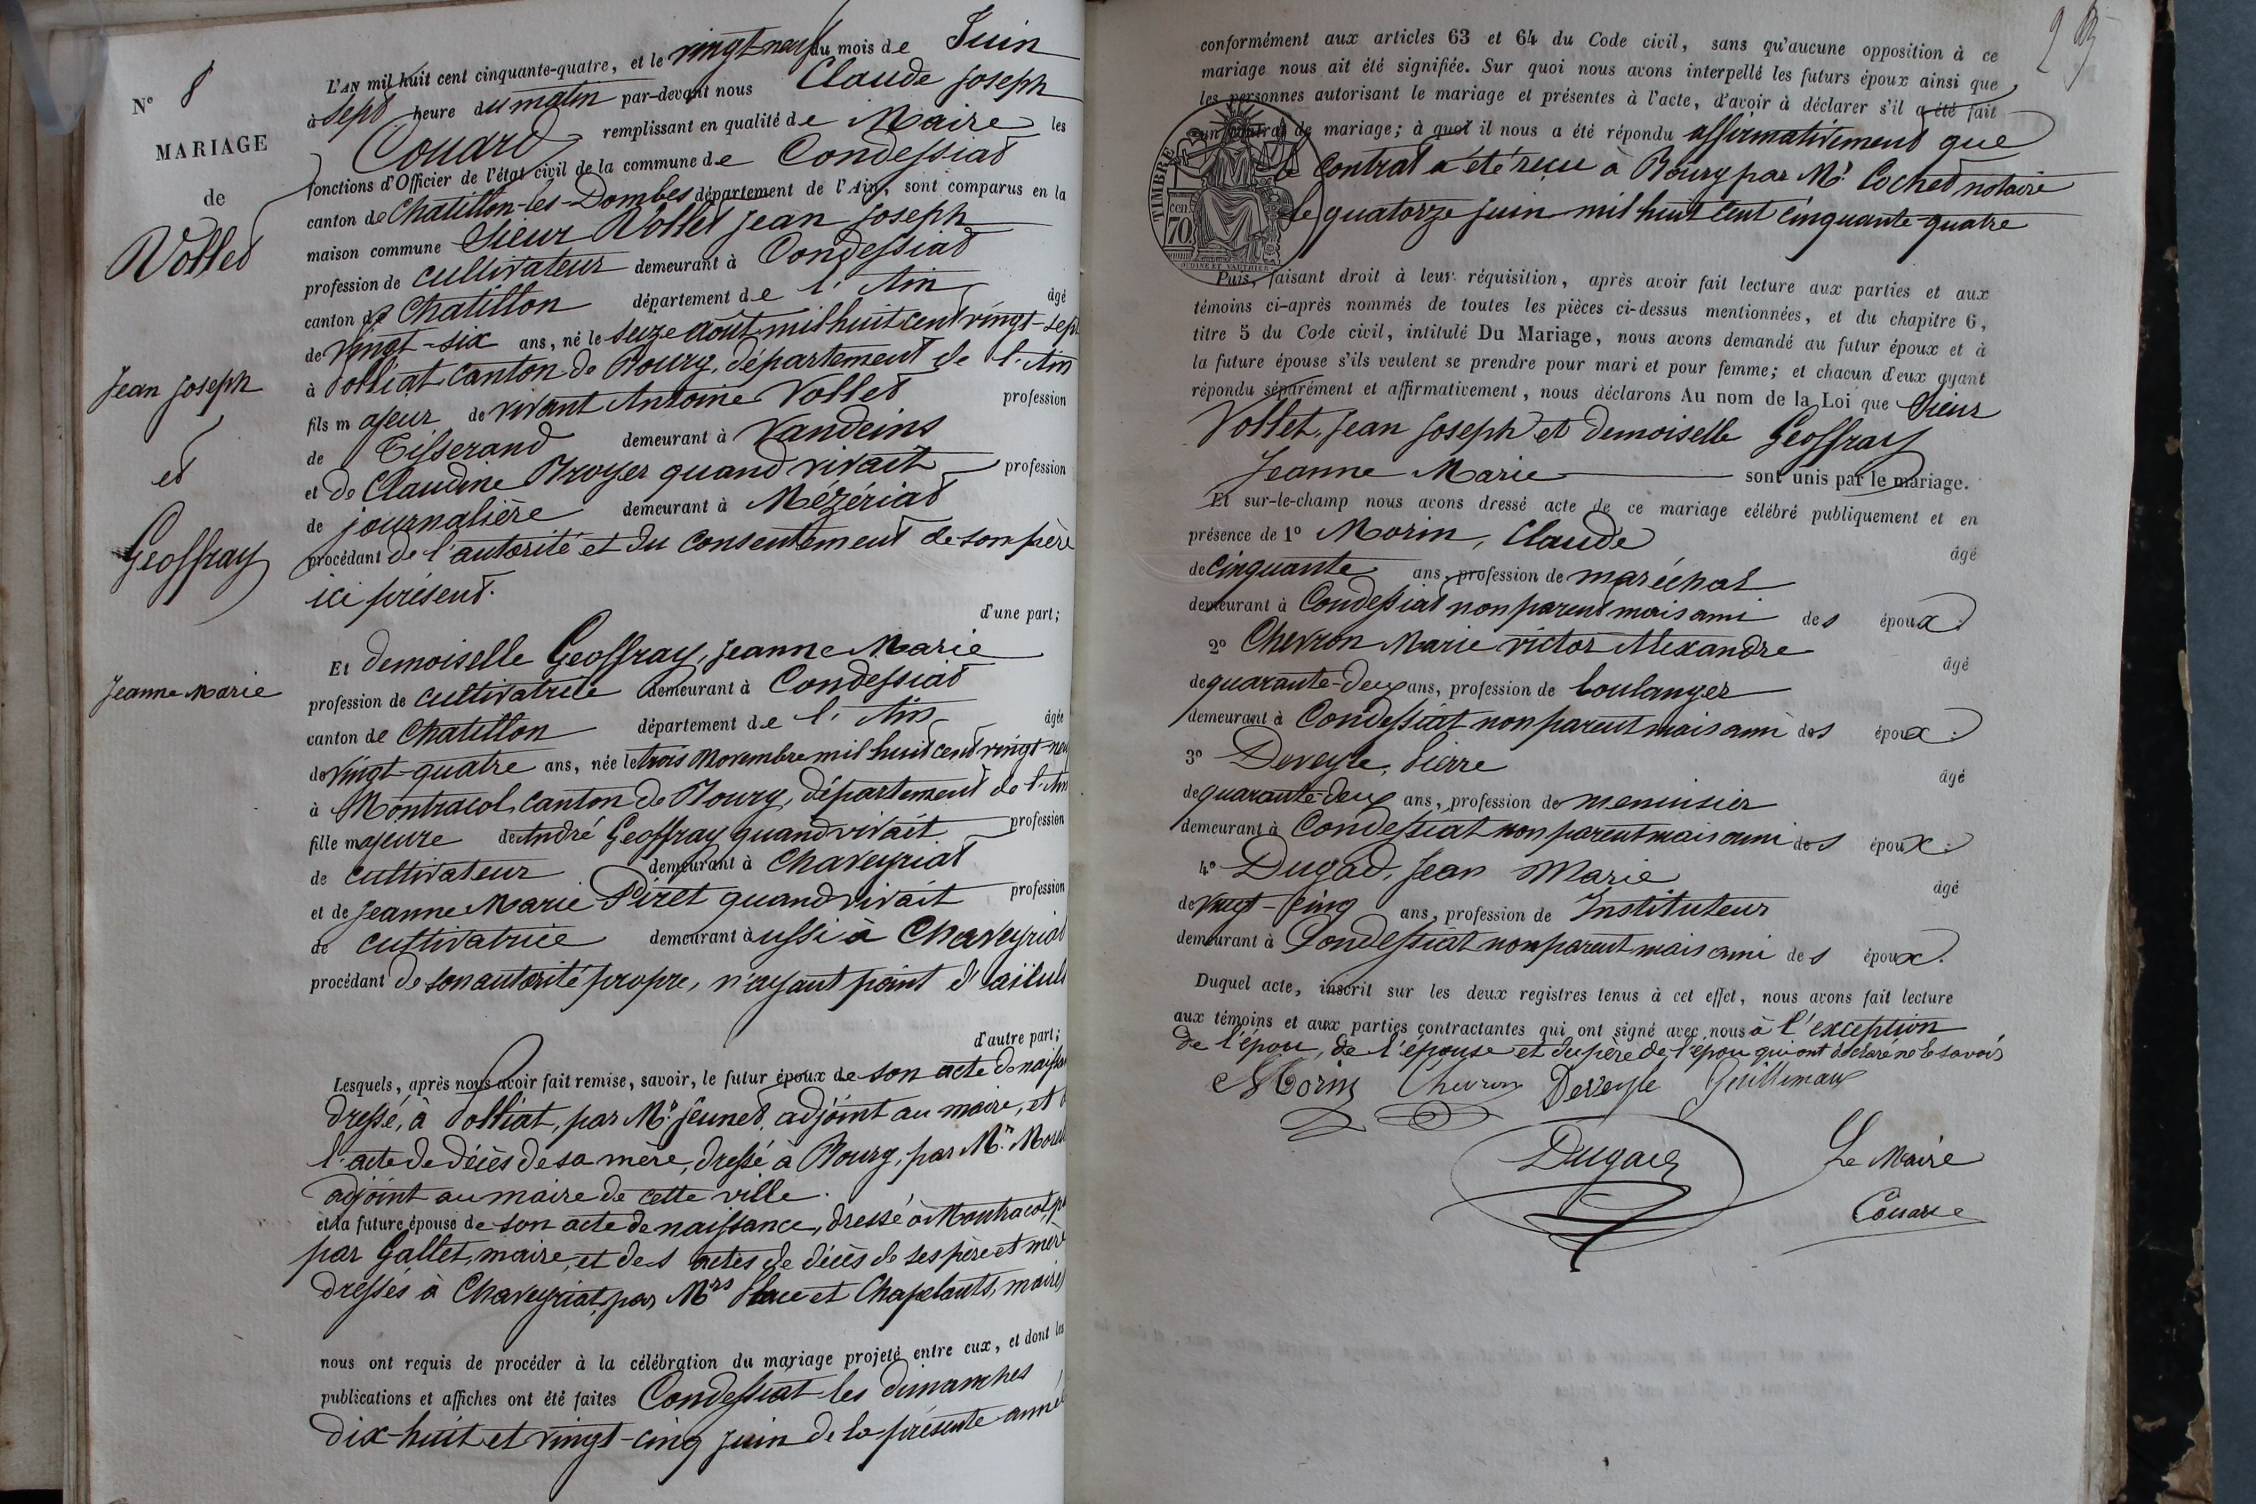 N° 8
MARIAGE
de
Vollet
Jean Joseph
et
Geoffray
Jeanne Marie
L'AN mil huit cent cinquante-quatre, et le vingt-neuf du mois de Juin
à sept heure du matin par-devant nous Claude Joseph
Couard remplissant en qualité de Maire les
fonctions d'Officier de l'état civil de la commune de Condessiat
canton de Chatillon-les-Dombes département de l'Ain, sont comparus en la
maison commune Sieur Vollet Jean Joseph
profession de cultivateur demeurant à Condessiat
canton de Chatillon département de l'Ain âgé
de vingt-six ans, né le seize août mil huit cent vingt-sept
à Polliat canton de Bourg, département de l'Ain
fils majeur de vivant Antoine Vollet profession
de Tisserand demeurant à Vandeins
et de Claudine Broyer quand vivait profession
de journalière demeurant à Mézériat
procédant de l'autorité et du consentement de son père
ici présent.
d'une part;
Et demoiselle Geoffray, Jeanne Marie
profession de cultivatrice demeurant à Condessiat
canton de Chatillon département de l'Ain âgée
de vingt-quatre ans, née le trois Novembre mil huit cent vingt-neuf
à Montracol, canton de Bourg, département de l'Ain
fille majeure de André Geoffray quand vivait profession
de cultivateur demeurant à Chaveyriat
et de Jeanne Marie Piret quand vivait profession
de cultivatrice demeurant aussi à Chaveyriat
procédant de son autorité propre, n'ayant point d'aïeuls
d'autre part;
Lesquels, après nous avoir fait remise, savoir, le futur époux de son acte de naissa
dressé, à Polliat, par Mr. Jeunet, adjoint au maire, et
l'acte de décès de sa mère, dressé à Bourg, par Mr.
adjoint au maire de cette ville.
et la future épouse de son acte de naissance, dressé à Montracol,
par Gallet, maire, et des actes de décès de ses père et mère
dressés à Chaveyriat, par Mrs Place et Chapelants, maires
nous ont requis de procéder à la célébration du mariage projeté entre eux, et dont les
publications et affiches ont été faites Condessiat les dimanches
dix-huit et vingt-cinq juin de la présente année
conformément aux articles 63 et 64 du Code civil, sans qu'aucune opposition à ce
mariage nous ait été signifiée. Sur quoi nous avons interpellé les futurs époux ainsi que
les personnes autorisant le mariage et présentes à l'acte, d'avoir à déclarer s'il a été fait
un contrat de mariage; à quoi il nous a été répondu affirmativement que
le contrat a été reçu à Bourg par Mr. Cochet notaire
le quatorze juin mil huit cent cinquante-quatre
TIMBRE
cen.
70
Puis, faisant droit à leur réquisition, après avoir fait lecture aux parties et aux
témoins ci-après nommés de toutes les pièces ci-dessus mentionnées, et du chapitre 6,
titre 5 du Code civil, intitulé Du Mariage, nous avons demandé au futur époux et à
la future épouse s'ils veulent se prendre pour mari et pour femme; et chacun d'eux ayant
répondu séparément et affirmativement, nous déclarons Au nom de la Loi que Sieur
Vollet, Jean Joseph et demoiselle Geoffray
Jeanne Marie sont unis par le mariage.
Et sur-le-champ nous avons dressé acte de ce mariage célébré publiquement et en
présence de 1° Morin, Claude âgé
de cinquante ans, profession de maréchal
demeurant à Condessiat non parent mais ami des époux.
2° Chevron Marie Victor Alexandre âgé
de quarante-deux ans, profession de boulanger
demeurant à Condessiat non parent mais ami des époux.
3° Deveyle, Pierre âgé
de quarante-deux ans, profession de menuisier
demeurant à Condessiat non parent mais ami des époux.
4° Dugad, Jean Marie âgé
de vingt-cinq ans, profession de Instituteur
demeurant à Condessiat non parent mais ami des époux.
Duquel acte, inscrit sur les deux registres tenus à cet effet, nous avons fait lecture
aux témoins et aux parties contractantes qui ont signé avec nous à l'exception
de l'époux, de l'épouse et du père de l'époux qui ont déclaré ne le savoir
Morin Chevron Deveyle
Dugad Le Maire
Couard